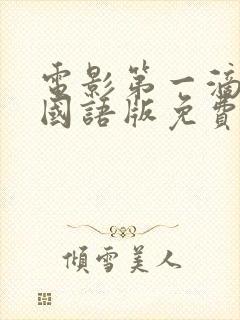 電影第一滴
國語版免費
傾雪美人